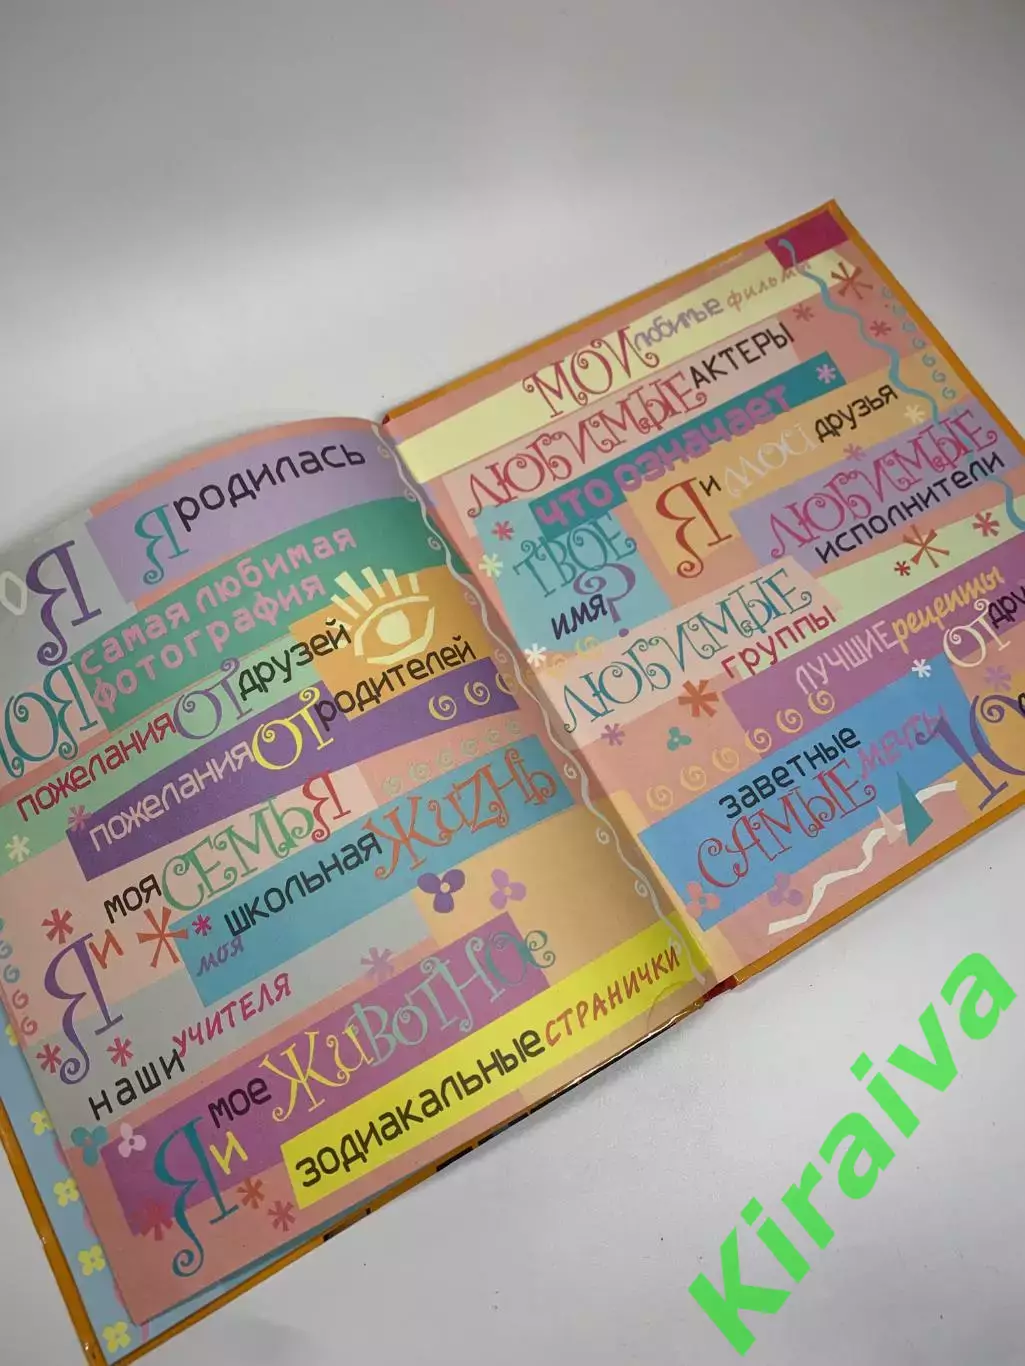 Я
Я РОДИЛАСЬ
МОЯ САМАЯ ЛЮБИМАЯ
ФОТОГРАФИЯ
ПОЖЕЛАНИЯ ОТ ДРУЗЕЙ
ПОЖЕЛАНИЯ ОТ РОДИТЕЛЕЙ
МОЯ СЕМЬЯ
Я И
МОЯ ШКОЛЬНАЯ ЖИZНЬ
НАШИ УЧИТЕЛЯ
Я И МОЕ ЖИВОТНОЕ
ЗОДИАКАЛЬНЫЕ СТРАНИЧКИ
МОИ любимые фильмы
ЛЮБИМЫЕ АКТЕРЫ
ЧТО ОЗНАЧАЕТ
ТВОЕ
ИМЯ?
Я И МОСІ ДРУЗЬЯ
ЛЮБИМЫЕ
ИСПОЛНИТЕЛИ
ЛЮБИМЫЕ
ГРУППЫ
ЛУЧШИЕ рецепты
ОТ
САМЫЕ
ЗАВЕТНЫЕ мечты
Kiraiva